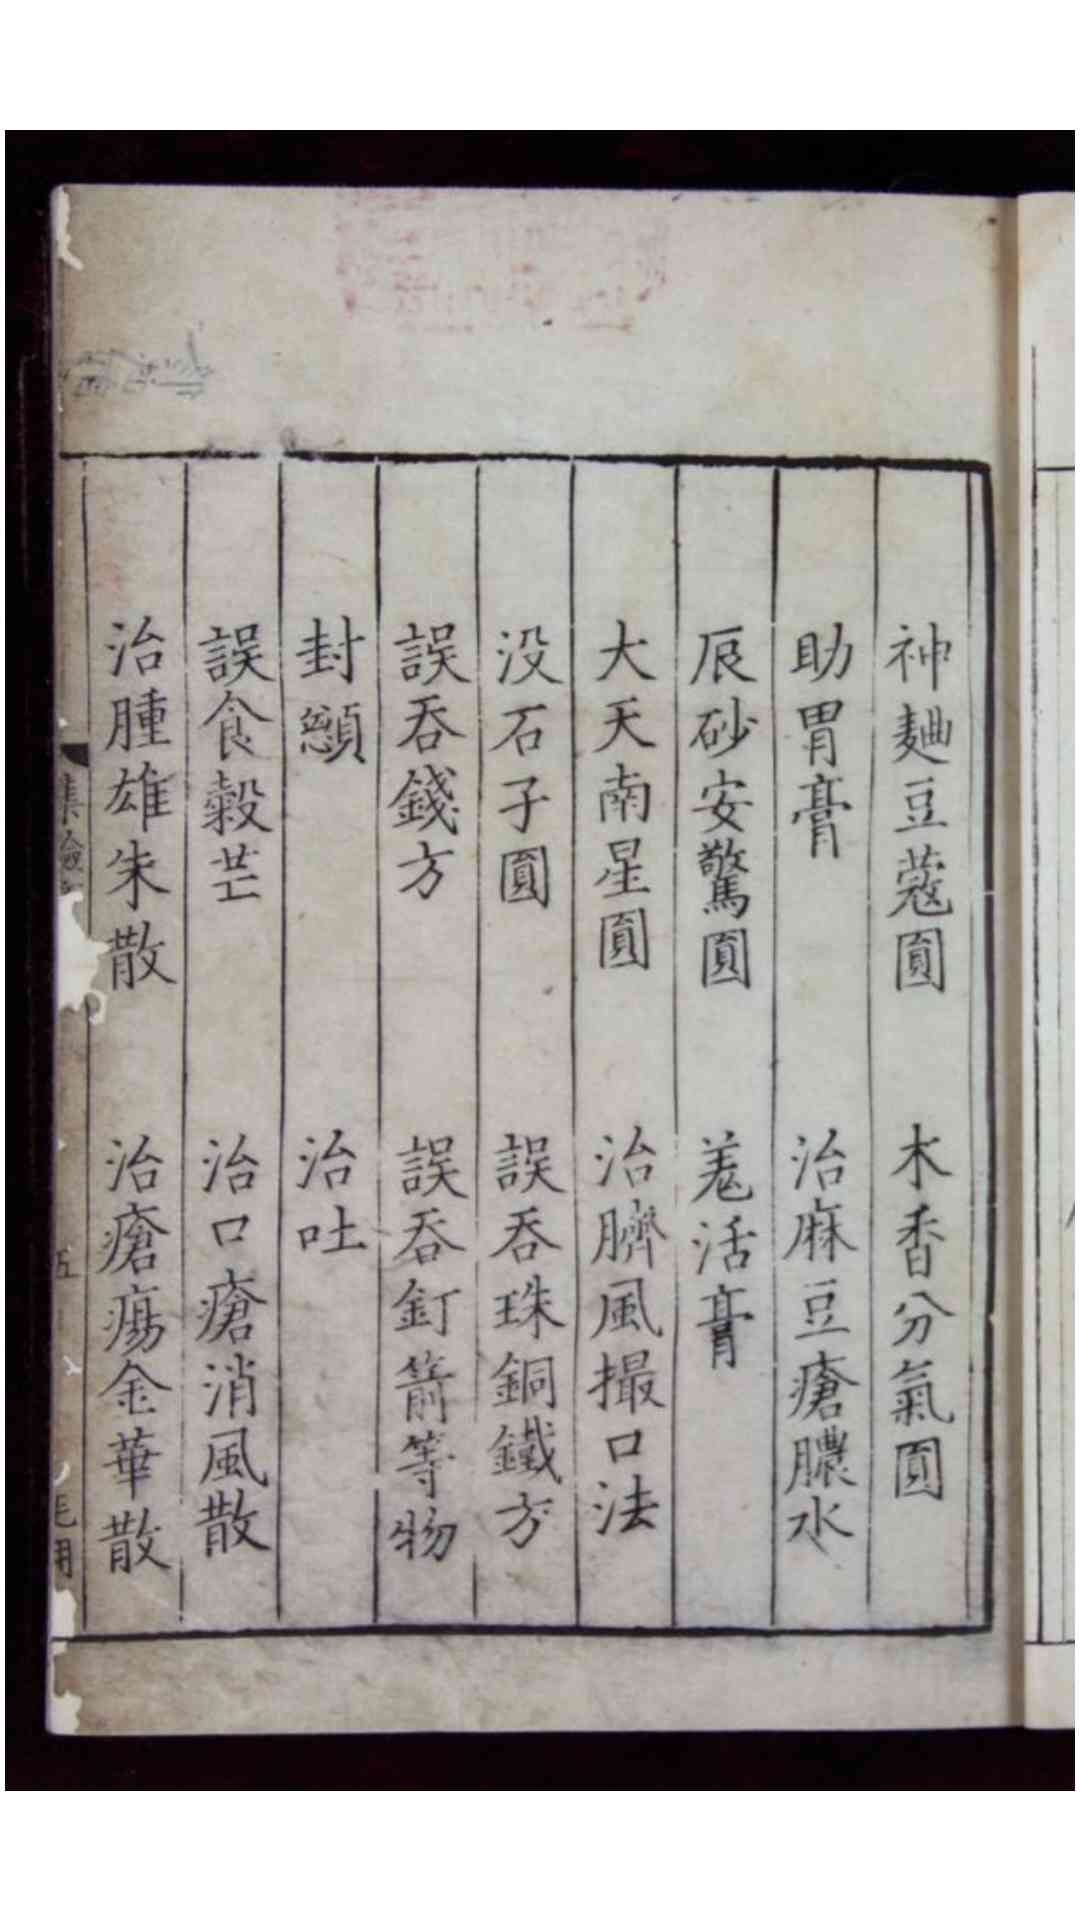 神麯豆蔻圓　木香分氣圓
助胃膏　治麻豆瘡膿水
辰砂安驚圓　羗活膏
大天南星圓　治臍風撮口法
没石子圓　誤吞珠銅鐵方
誤吞錢方　誤吞釘箭等物
封顖　治吐
誤食穀芒　治口瘡消風散
治腫雄朱散　治瘡瘍金華散
集驗
五